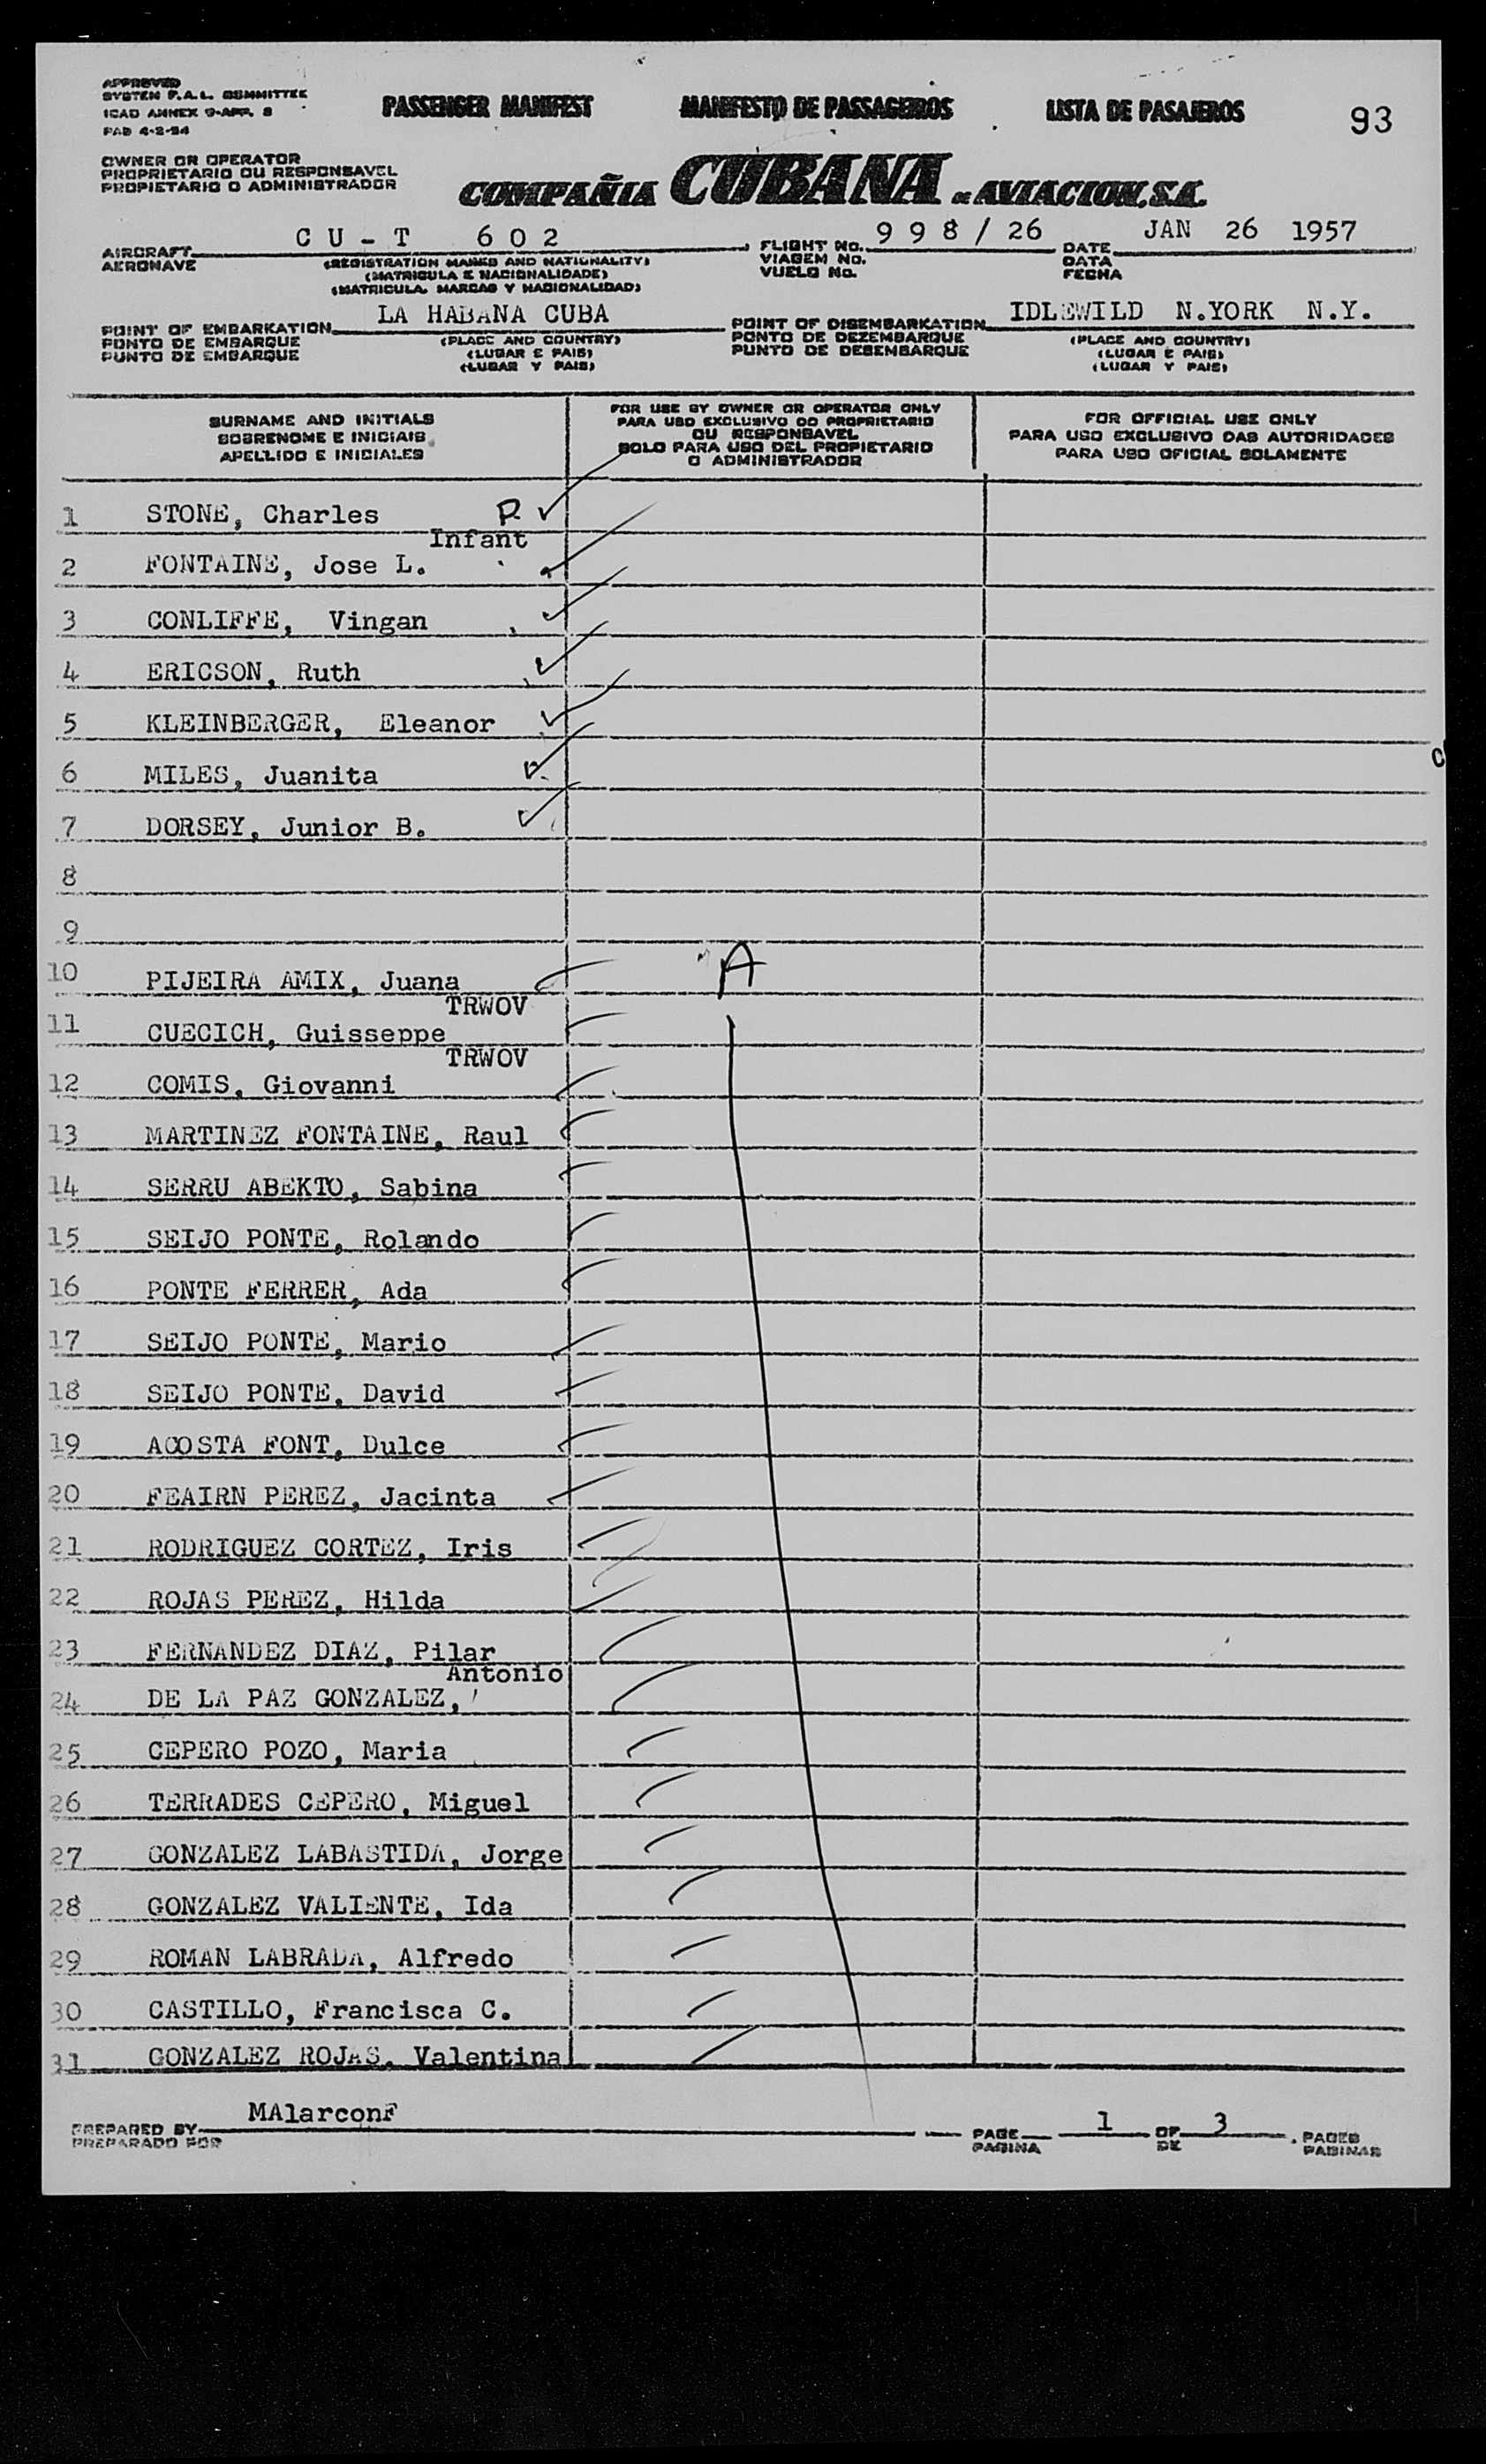 APPROVED
SYSTEM F.A.L. COMMITTEE
ICAO ANNEX 9-APP. 3
FAB 4-2-54
PASSENGER MANIFEST MANIFESTO DE PASSAGEIROS LISTA DE PASAJEROS 93
OWNER OR OPERATOR
PROPRIETARIO OU RESPONSAVEL
PROPIETARIO O ADMINISTRADOR
COMPAÑIA CUBANA DE AVIACION, S.A.
AIRCRAFT CU-T 602 FLIGHT No. 998/26 DATE JAN 26 1957
AERONAVE (REGISTRATION MARKS AND NATIONALITY) VIAGEM No. DATA
(MATRICULA E NACIONALIDADE) VUELO No. FECHA
(MATRICULA, MARCAS Y NACIONALIDAD)
POINT OF EMBARKATION LA HABANA CUBA POINT OF DISEMBARKATION IDLEWILD N.YORK N.Y.
PONTO DE EMBARQUE (PLACE AND COUNTRY) PONTO DE DEZEMBARQUE (PLACE AND COUNTRY)
PUNTO DE EMBARQUE (LUGAR E PAIS) PUNTO DE DESEMBARQUE (LUGAR E PAIS)
(LUGAR Y PAIS) (LUGAR Y PAIS)
SURNAME AND INITIALS
SOBRENOME E INICIAIS
APELLIDO E INICIALES
FOR USE BY OWNER OR OPERATOR ONLY
PARA USO EXCLUSIVO DO PROPRIETARIO
OU RESPONSAVEL
SOLO PARA USO DEL PROPIETARIO
O ADMINISTRADOR
FOR OFFICIAL USE ONLY
PARA USO EXCLUSIVO DAS AUTORIDADES
PARA USO OFICIAL SOLAMENTE
1 STONE, Charles R
Infant
2 FONTAINE, Jose L.
3 CONLIFFE, Vingan
4 ERICSON, Ruth
5 KLEINBERGER, Eleanor
6 MILES, Juanita
7 DORSEY, Junior B.
8
9
10 PIJEIRA AMIX, Juana A
TRWOV
11 CUECICH, Guisseppe
TRWOV
12 COMIS, Giovanni
13 MARTINEZ FONTAINE, Raul
14 SERRU ABEKTO, Sabina
15 SEIJO PONTE, Rolando
16 PONTE FERRER, Ada
17 SEIJO PONTE, Mario
18 SEIJO PONTE, David
19 ACOSTA FONT, Dulce
20 FEAIRN PEREZ, Jacinta
21 RODRIGUEZ CORTEZ, Iris
22 ROJAS PEREZ, Hilda
23 FERNANDEZ DIAZ, Pilar
Antonio
24 DE LA PAZ GONZALEZ,
25 CEPERO POZO, Maria
26 TERRADES CEPERO, Miguel
27 GONZALEZ LABASTIDA, Jorge
28 GONZALEZ VALIENTE, Ida
29 ROMAN LABRADA, Alfredo
30 CASTILLO, Francisca C.
31 GONZALEZ ROJAS, Valentina
PREPARED BY MAlarconF PAGE 1 OF 3 PAGES
PREPARADO POR PAGINA DE PAGINAS